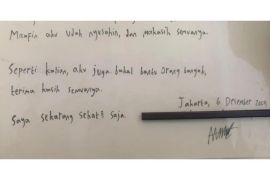 Maafin aku udah nyusahin, dan makasih semuanya.
Seperti kalian, aku juga bakal bantu orang banyak,
terima kasih semuanya.
Jakarta, 6 Desember
Saya sekarang sehat saja.